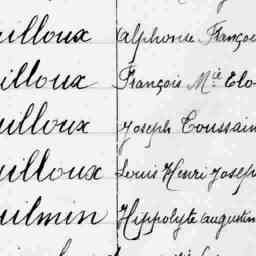 uilloux Alphonse Françoi
uilloux François Mie Elo
uilloux Joseph Toussain
uilloux Louis Henri Joseph
uilmin Hippolyte Augustin